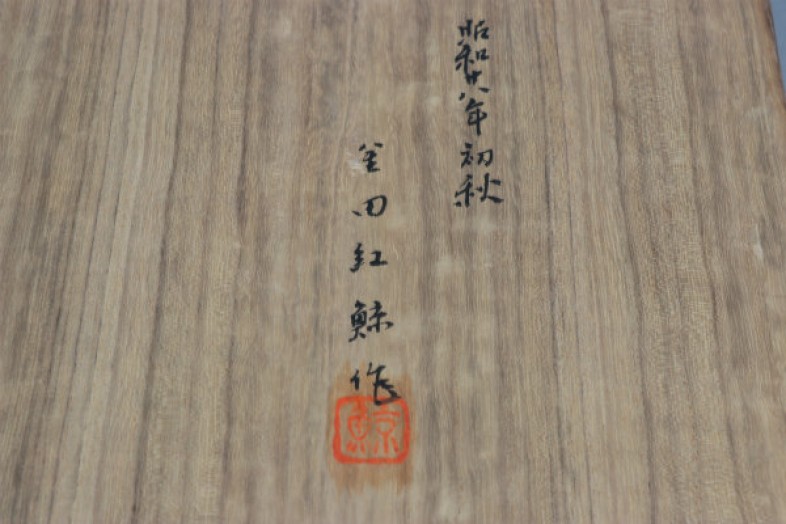 昭和廿八年初秋
釜田紅鯨作
鯨